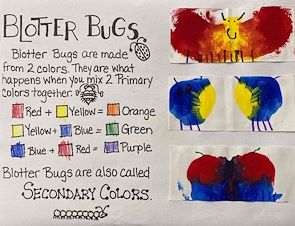 BLOTTER BUGS
Blotter Bugs are made
from 2 colors. They are what
happens when you mix 2 Primary
colors together:
Red + Yellow = Orange
Yellow + Blue = Green
Blue + Red = Purple
Blotter Bugs are also called
SECONDARY COLORS.